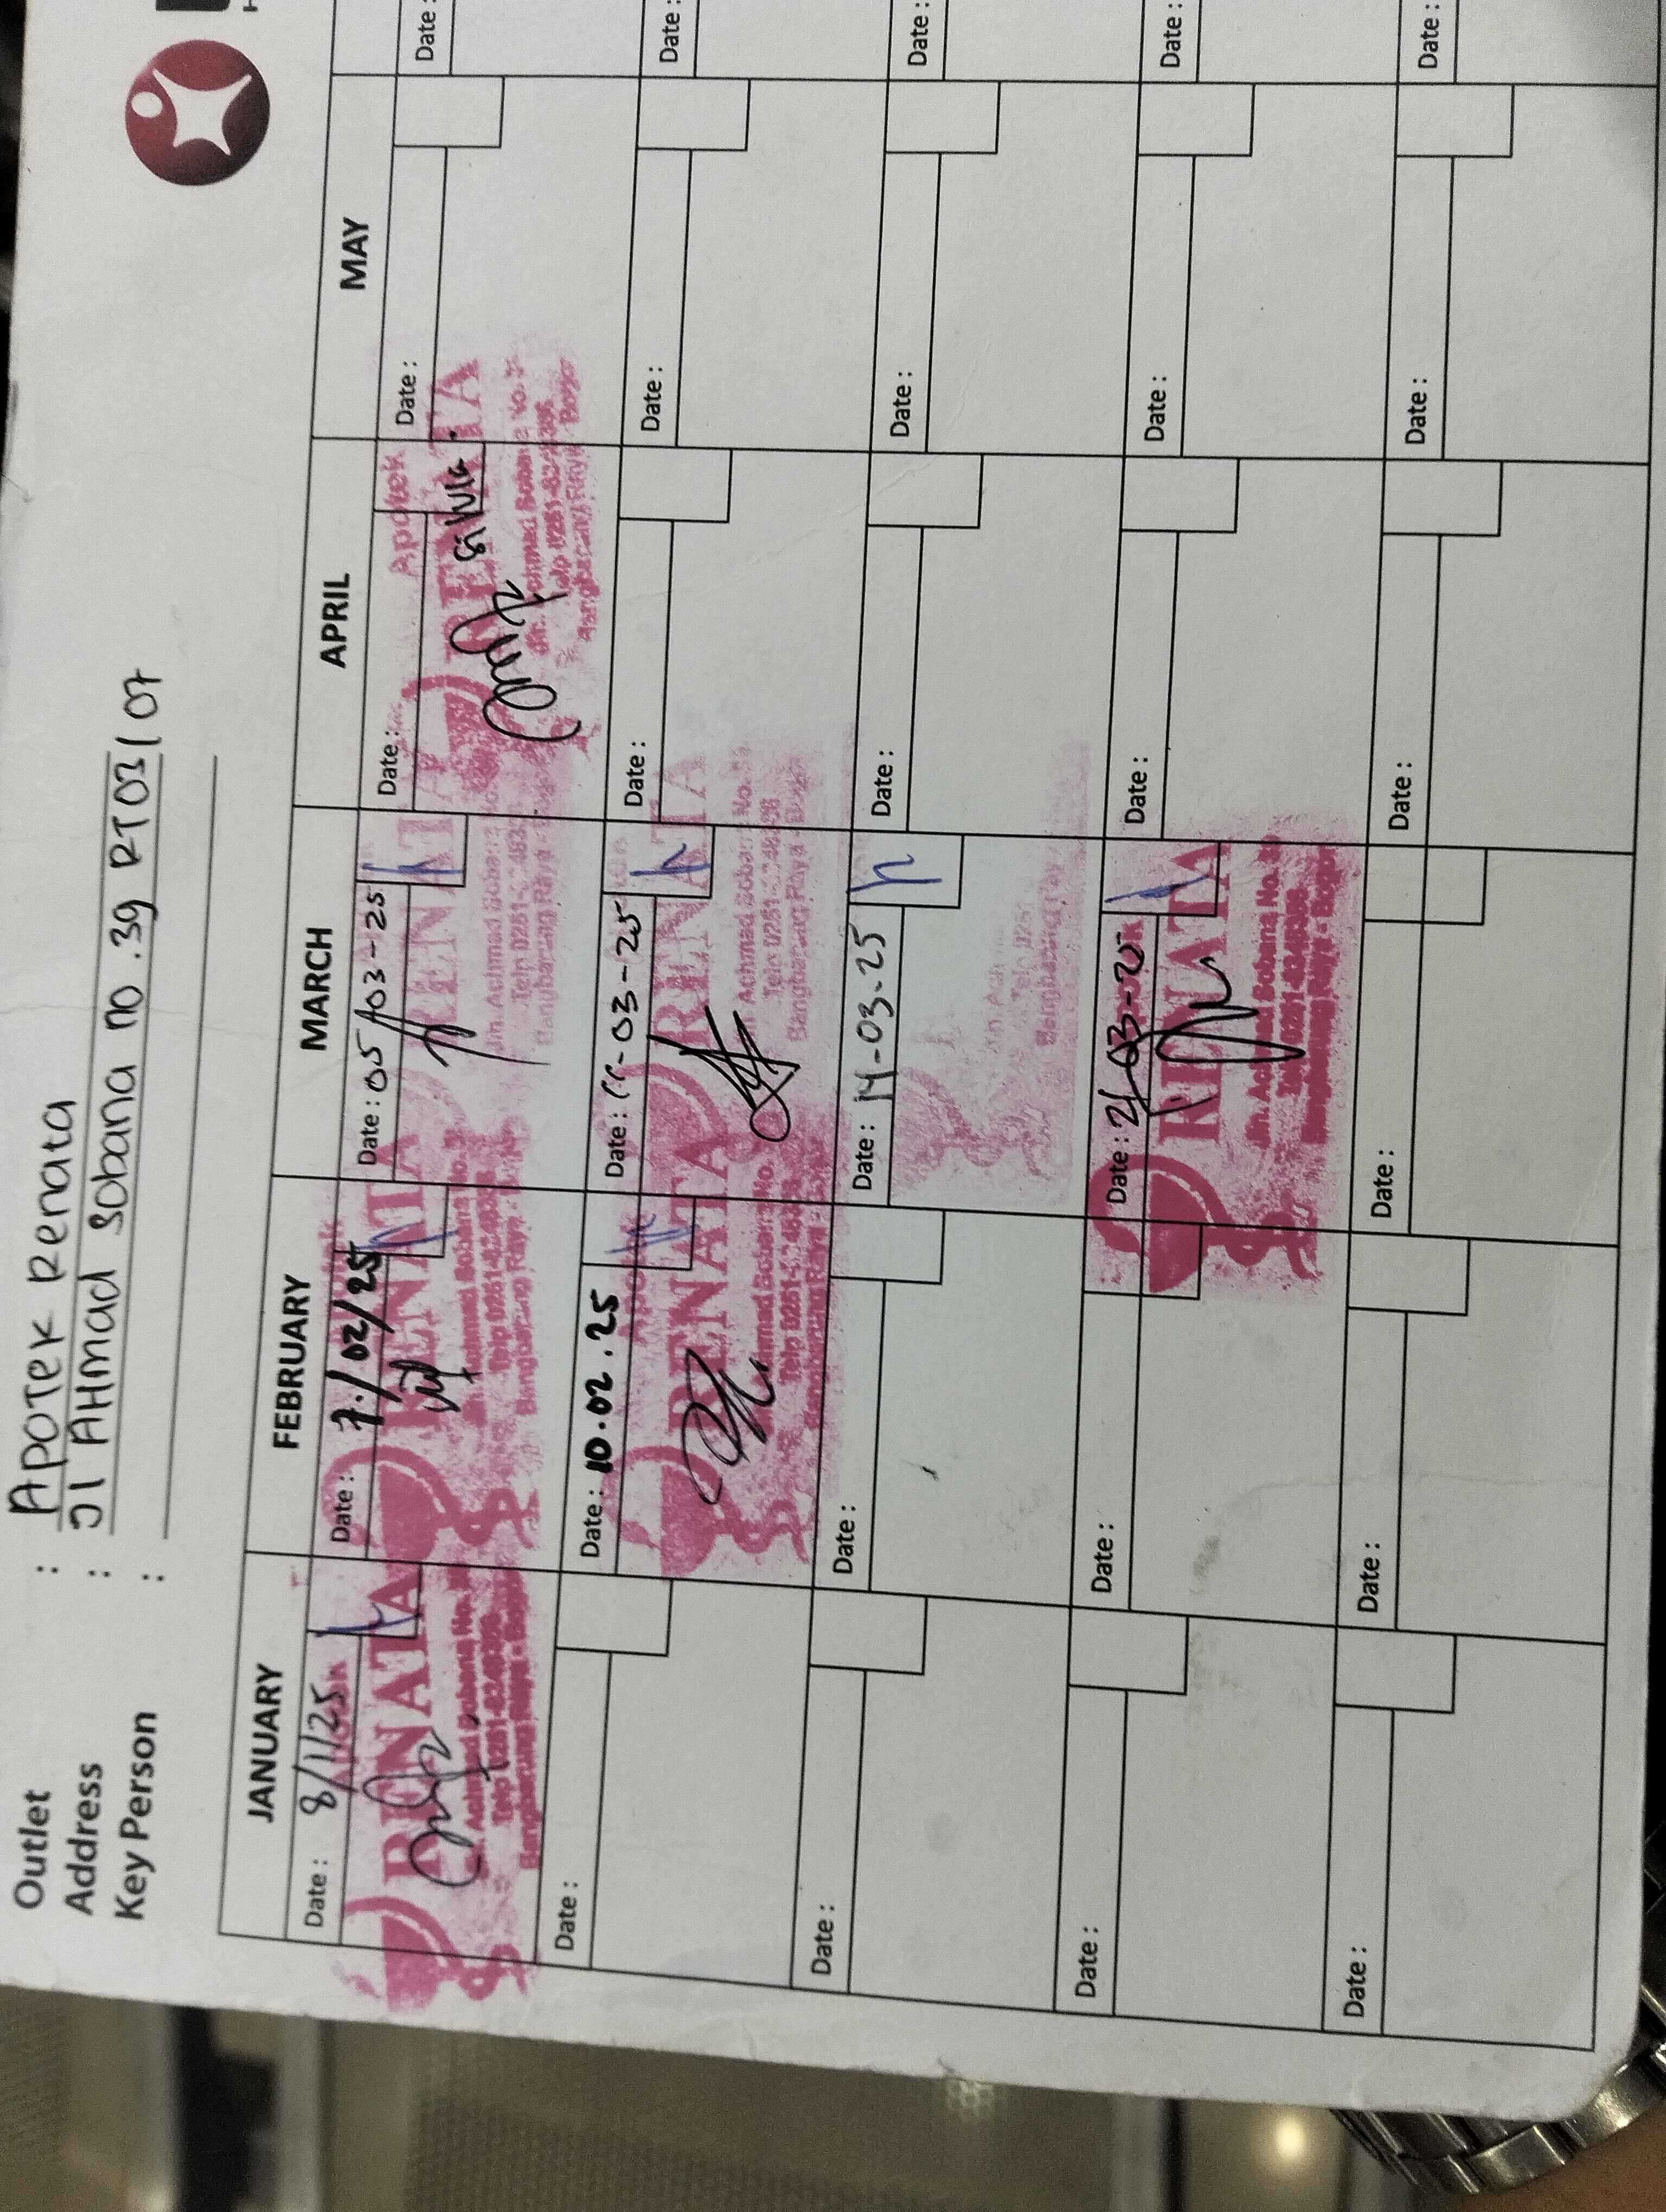 Outlet : APOTEK Renata
Address : Jl AHmad Sobana no . 39 RT 03 / 07
Key Person :
JANUARY FEBRUARY MARCH APRIL MAY
Date : 8/1/25 Date : 7/02/25 Date : 05/03-25 Date : Date : Date :
RENATA RENATA RENATA Apotek RENATA
Silvia
Date : Date : 10.02.25 Date : 11-03-25 Date : Date : Date :
RENATA RENATA
Date : Date : Date : 14-03.25 Date : Date : Date :
Date : Date : Date : 21-03-25 Date : Date : Date :
RENATA
Jln. Achmad Sobana No.
Date : Date : Date : Date : Date : Date :